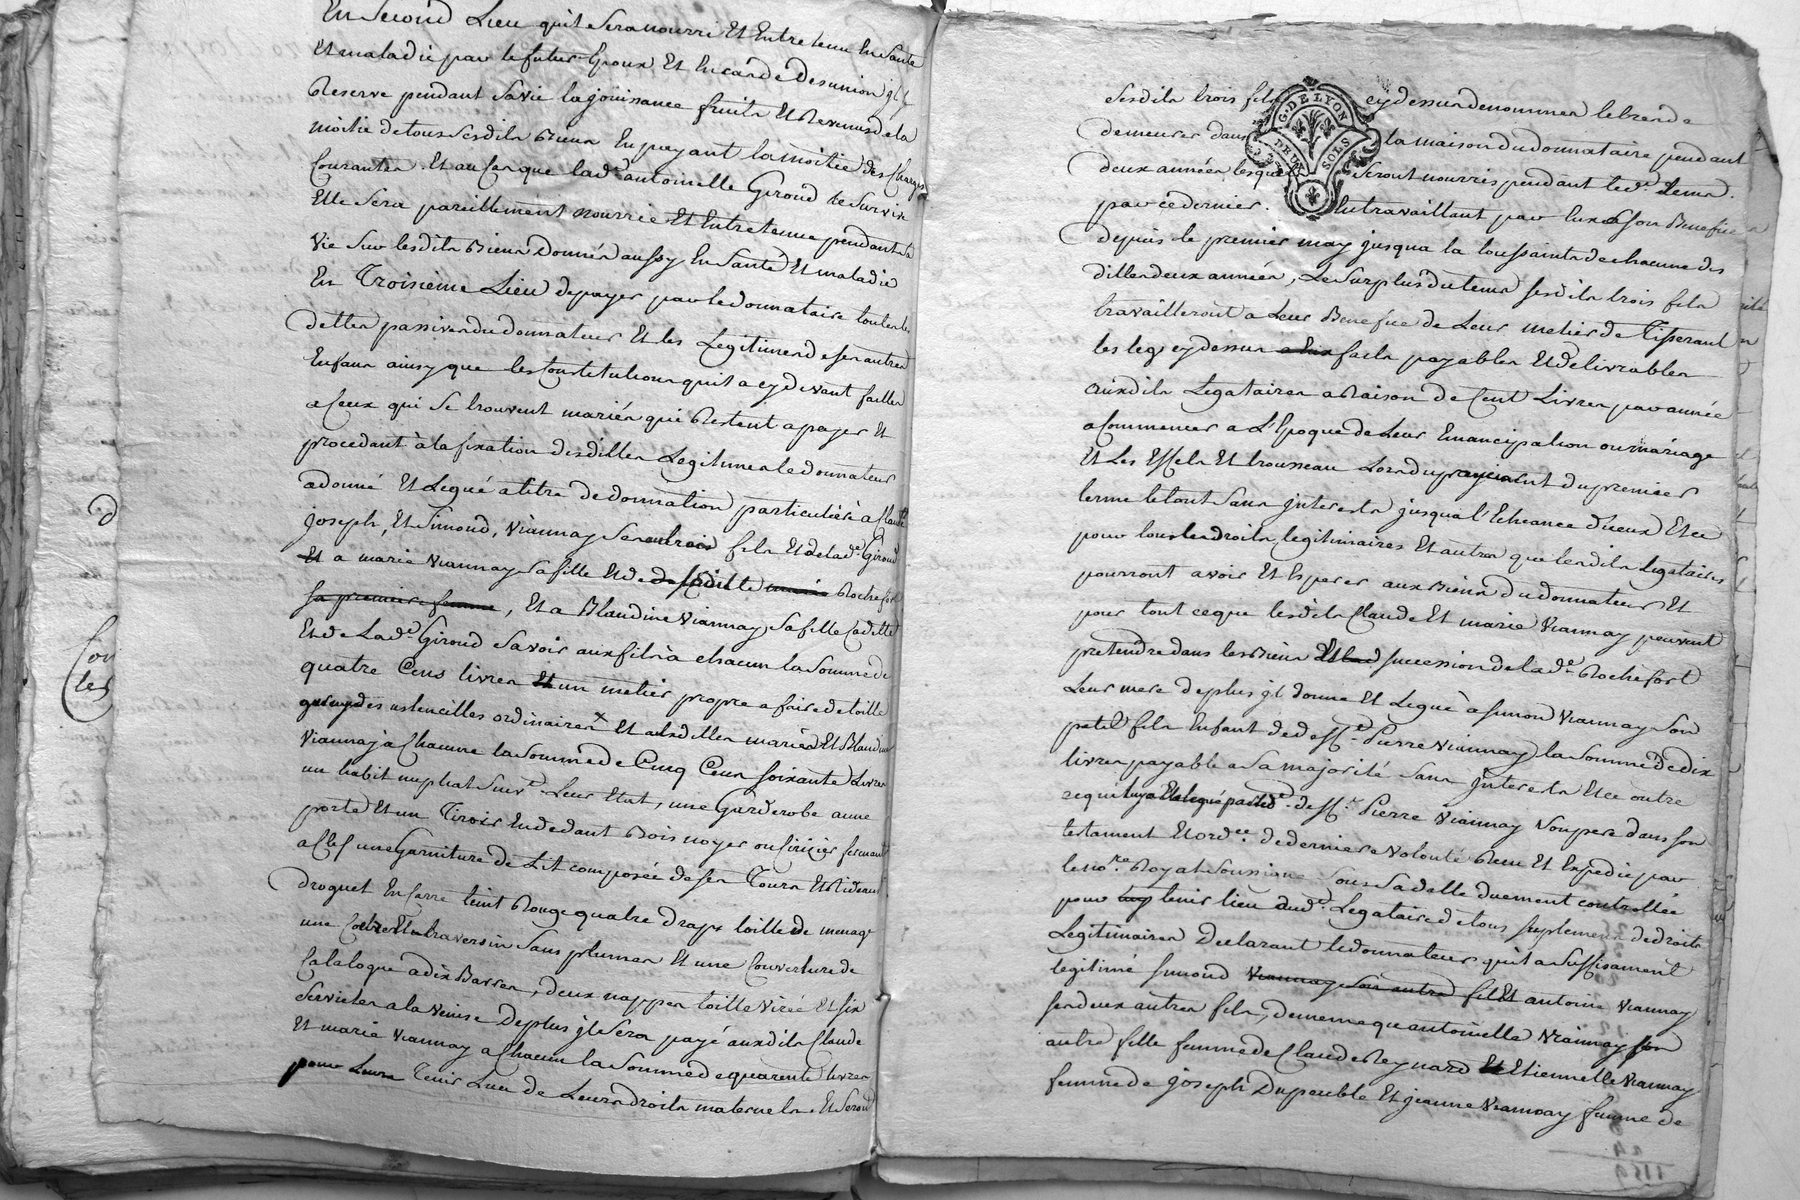 En Second Lieu qu'il Sera nourri Et Entretenu En Santé
Et maladie par le futur Epoux Et En cas de Desunion jl f
Reserve pendant Sa vie la jouissance fruits Et Revenus de la
moitié de tous Sesdits Biens En payant la moitié des Charges
Courantes. Et au Cas que lad.e antoinette Giroud le Survive
Elle Sera pareillement nourrie Et Entretenue pendant sa
vie Sur lesdits Biens Donnés aussy En Santé Et maladie
En Troisieme Lieu de payer par le donnataire toutes les
dettes passives du donnateur Et les Legitimes de ses autres
Enfans ainsy que les Constitutions qu'il a cy devant faittes
a Ceux qui Se trouvent mariés qui Restent a payer Et
procedant à la fixation desdittes Legitimes le donnateur
a donné Et Legué a titre de donnation particulière à Claude
joseph, Et Simond, Viannay Ses trois fils Et de lad.e Giroud
Et a marie Viannay Sa fille Et de Rochefort
sa premiere femme, Et a Blandine Viannay Sa fille Cadette
Et de Lad.e Giroud Savoir aux fils à chacun la Somme de
quatre Cens livres Et un metier propre a faire de toille
garny des ustencilles ordinaires x Et auxdittes marie Et Blandine
Viannay a Chacune la Somme de Cinq Cens Soixante Livres
un habit nuptial Suiv.t Leur Etat, une Garderobe a une
porte Et un Tiroir En dedant Bois noyer ou Cirizier fermant
a Clef une Garniture de Lit composée de Ses Tours Et Rideaux
droguet En Serre teint Rouge quatre draps toille de menage
une Coitre Et traversin Sans plumes Et une Couverture de
Catalogue a dix Barres, deux nappes toille Virée Et Six
Serviettes a la Venise De plus jl Sera payé auxdits Claude
Et marie Viannay a Chacun la Somme de quarente livres
pour Leurs Tenir Lieu de Leurs droits maternels. Et Seront
Sesdits trois fils cy dessus denommés le Bende
demeurer dans la maison du donnataire pendant
deux années lesquels Seront nourris pendant led.t tems
par ce dernier. En travaillant par Eux a Son Benefice
depuis le premier may jusqua la toussaints de chacune des
dittes deux années, Le Surplus du tems Sesdits trois fils
travailleront a Leur Benefice de Leur metier de Tisserant
les legs cy dessus faits payables Et delivrables
auxdits Legataires a Raison de Cent Livres par année
a Commencer a L'Epoque de Leur Emancipation ou mariage
Et Les Effets Et trousseau Lors du payement du premier
terme le tout Sans jnterets jusqua l'Echeance d'iceux Et ce
pour tous les droits legitimaires Et autres que lesdits Legataires
pourront avoir Et Esperer aux Biens du donnateur Et
pour tout ce que lesdits Claude Et marie Viannay peuvent
pretendre dans les Biens Et succession de lad.e Rochefort
Leur mere de plus jl donne Et Legue à Simond Viannay Son
petit fils Enfant de deff.t Pierre Viannay la Somme de dix
livres payable a Sa majorité Sans jnterets Et ce outre
ce qui luy a Eté legué par led.t deff.t Pierre Viannay Son pere dans Son
testament Et ord.ce de derniere Volonté Recu Et Expedié par
le no.re Royal Soussigné Sous Sa datte duement controllée
pour tenir lieu aud.t Legataire de tous Suplement de droits
Legitimaires Declarant le donnateur qu'il a Suffisament
legitimé Simond Viannay Son autre fils Et antoine Viannay
Ses deux autres fils, de meme que antoinette Viannay Son
autre fille femme de Claude Reynard Et Etiennette Viannay
femme de joseph Dupeuble Et jeanne Viannay femme de
G. DE LYON
DEUX SOLS